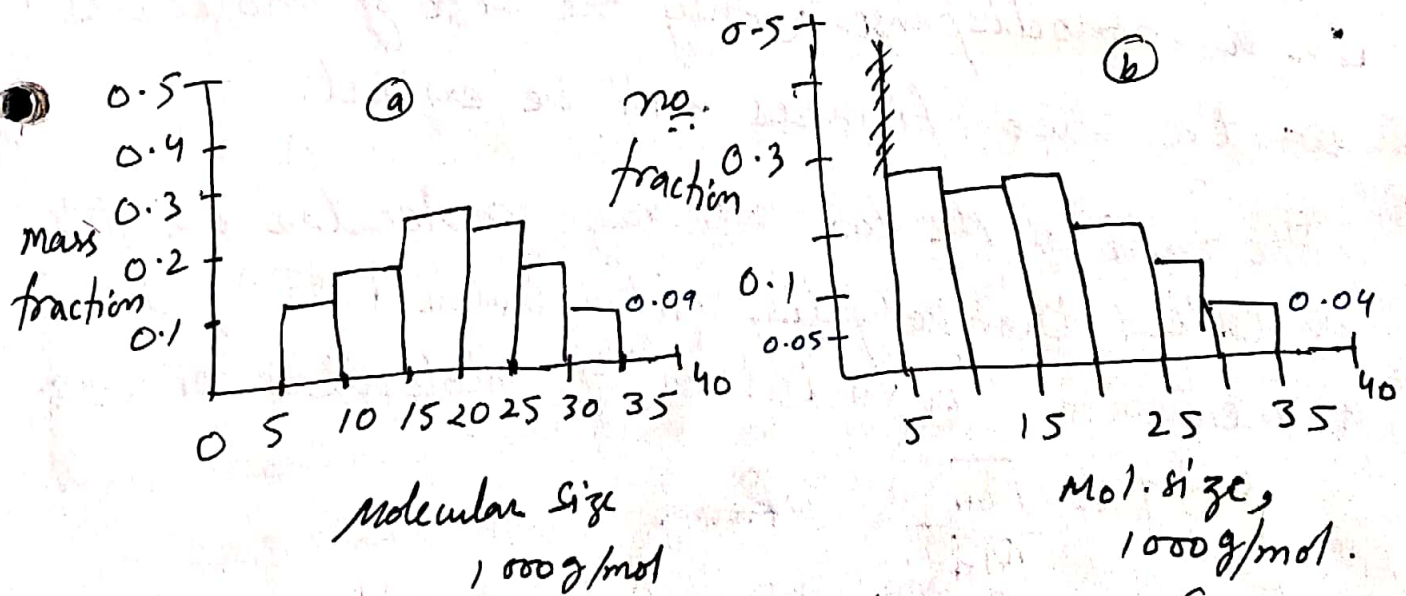 ⓐ
0.5
0.4
0.3
0.2
0.1
mass
fraction
0.09
0 5 10 15 20 25 30 35 40
Molecular size
1000g/mol
ⓑ
0-5
no.
fraction
0.3
0.1
0.05
0.04
5 15 25 35 40
Mol. size,
1000g/mol.